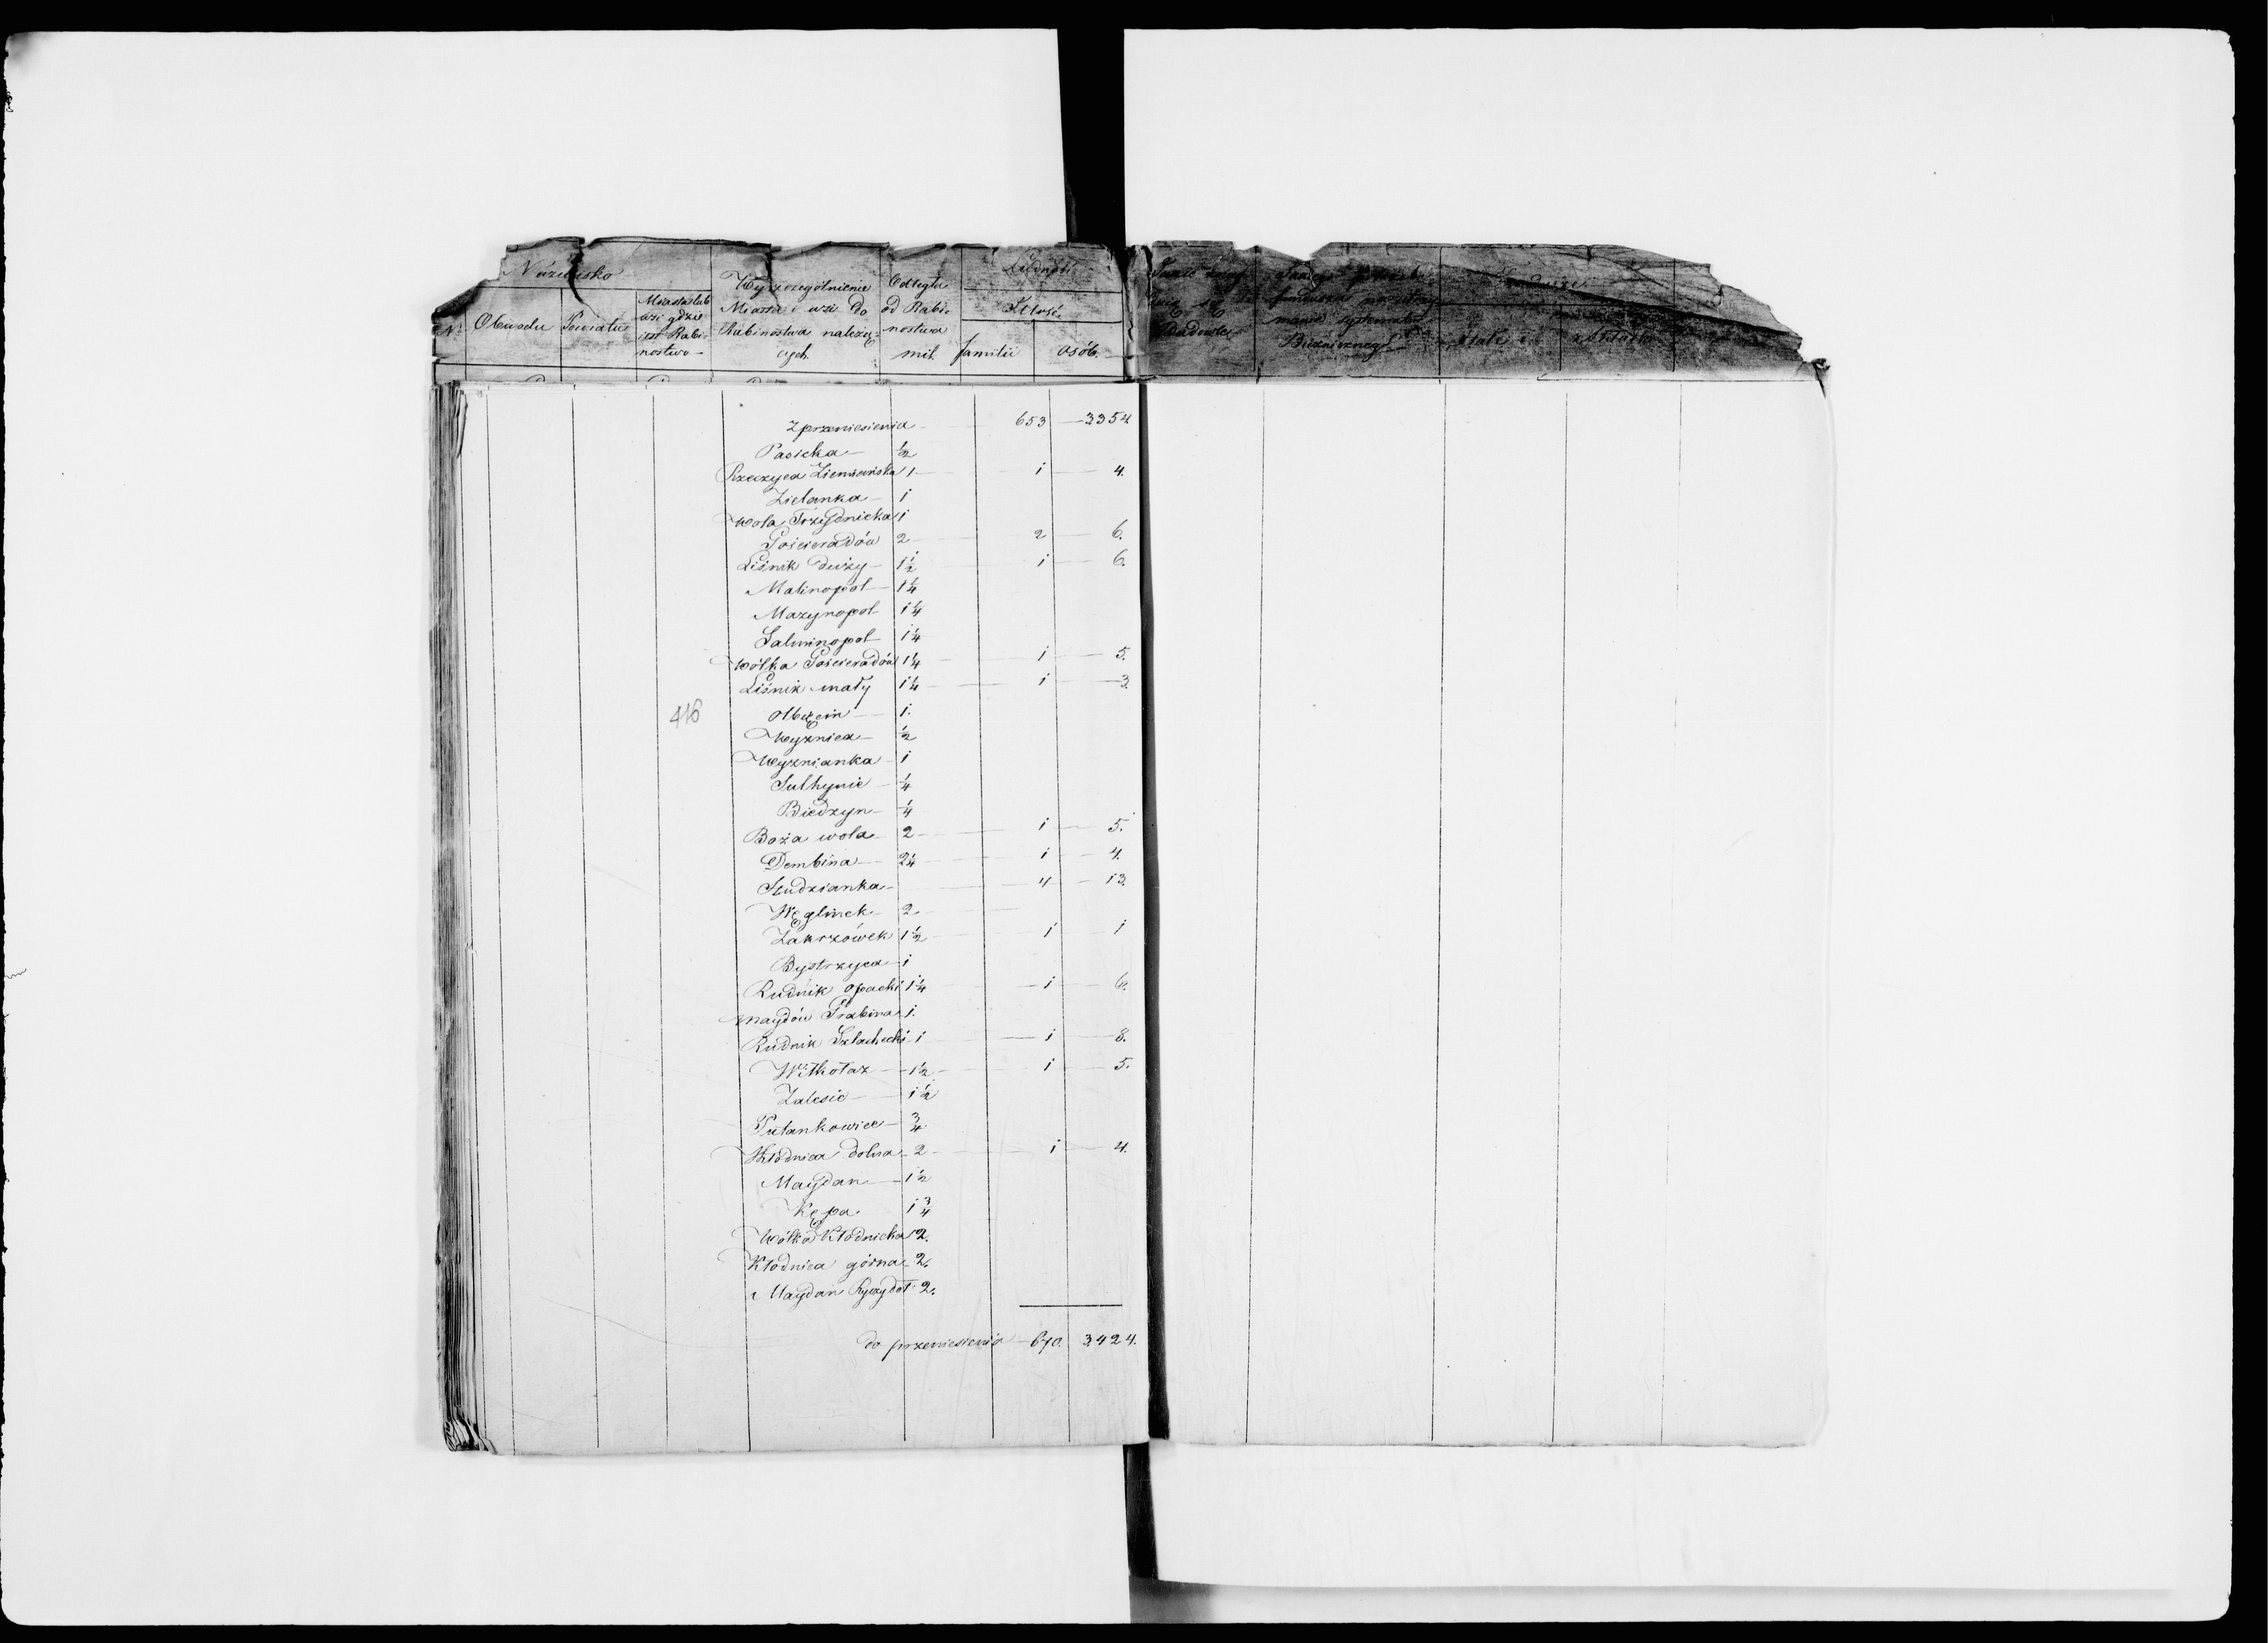 Nazwisko
Nr Obwodu Powiatu Miasta lub wsi gdzie jest Rabinostwo
Wyszczególnienie Miasta i wsi do Rabinostwa należących
Odległ od Rabinostwa mil
Ludność
Ilość
familii osób
z przeniesienia 653 3354
Pasieka ½
Rzeczyca Ziemiańska 1 1 4.
Zielanka 1
Wola Trzydnicka 1
Gościeradów 2 2 6.
Liśnik duży 1½ 1 6.
Malinopol 1¼
Mazynopol 1¼
Salwinopol 1¼
Wólka Gościeradów 1¼ 1 5.
Liśnik mały 1¼ 1 3.
416
Olbięcin 1.
Wyżnica ½
Wyżnianka 1
Suchynie ¼
Biedzyn ¼
Boża wola 2 1 5.
Dembina 2¼ 1 4.
Studzianka 4 13.
Węglinek 2
Zakrzówek 1½ 1 1
Bystrzyca 1
Rudnik Opacki 1¼ 1 6.
Maydów Grabina 1.
Rudnik Szlachecki 1 1 8.
Wilkołaz 1½ 1 5.
Zalesie 1½
Pułankowice ¾
Kłodnica dolna 2 1 4.
Maydan 1½
Kępa 1¾
Wólka Kłodnicka 2.
Kłodnica górna 2.
Maydan 2.
do przeniesienia 670. 3424.